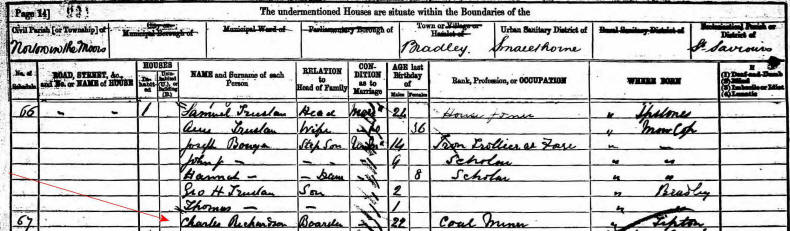 Page 14] 931
The undermentioned Houses are situate within the Boundaries of the
Civil Parish [or Township] of
City or Municipal Borough of
Municipal Ward of
Parliamentary Borough of
Town or Village or Hamlet of
Urban Sanitary District of
Rural Sanitary District of
Ecclesiastical Parish or District of
Norton in the Moors
Bradley
Smallthorne
St Saviours
No. of Schedule
ROAD, STREET, &c., and No. or NAME of HOUSE
HOUSES
Inhabited
Uninhabited (U.), or Building (B.)
NAME and Surname of each Person
RELATION to Head of Family
CONDITION as to Marriage
AGE last Birthday of
Males
Females
Rank, Profession, or OCCUPATION
WHERE BORN
If
(1) Deaf-and-Dumb
(2) Blind
(3) Imbecile or Idiot
(4) Lunatic
66 - - 1 Samuel Truslan Head 26 " Ipstones
Truslan Wife do 36 " Mow Cop
Joseph Step Son 14 Iron " -
John - - 9 Scholar " "
Hannah - Daur 8 Scholar " "
Geo H Truslan Son 2 " Bradley
Thomas - - 1 " "
67 Charles Richardson Boarder 22 Coal Miner " Tipton